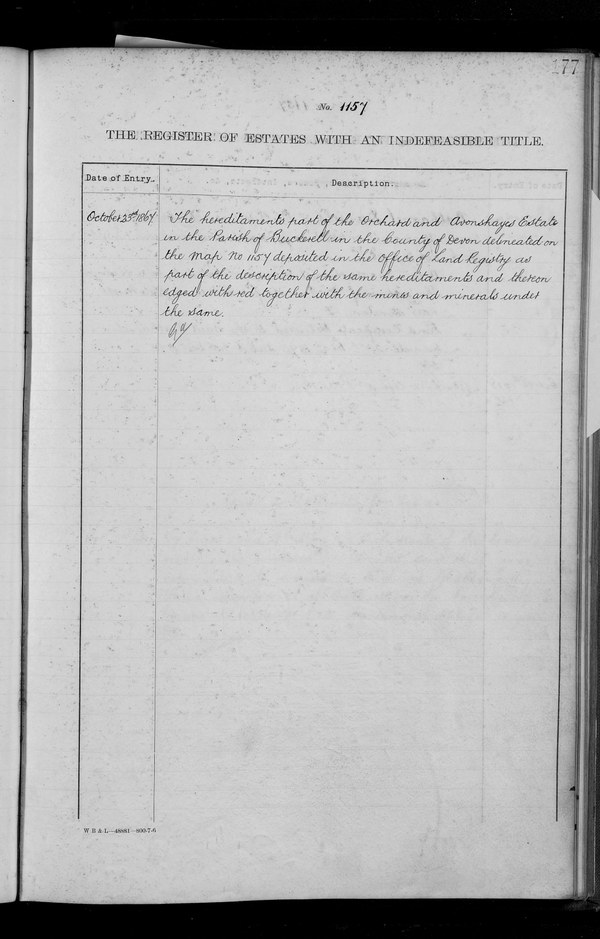 177
No. 1157
THE REGISTER OF ESTATES WITH AN INDEFEASIBLE TITLE.
Date of Entry.
Description.
October 23rd 1867
The hereditaments part of the Orchard and Avonshayes Estate
in the Parish of Buckerell in the County of Devon delineated on
the Map No 1157 deposited in the Office of Land Registry as
part of the description of the same hereditaments and thereon
edged with red together with the mines and minerals under
the same.
W B & L—48981—800-7-6